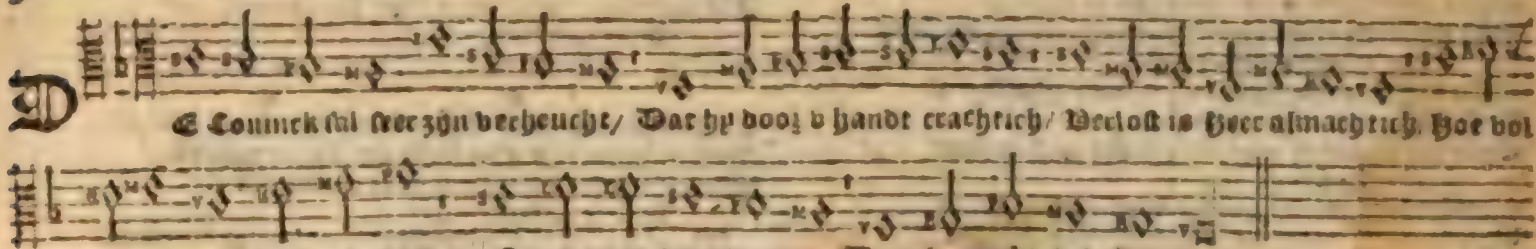 DE Coninck sal seer zijn verheucht/ Dat hy door v handt crachtich/ Verlost is Heer almachtich. Hoe vol